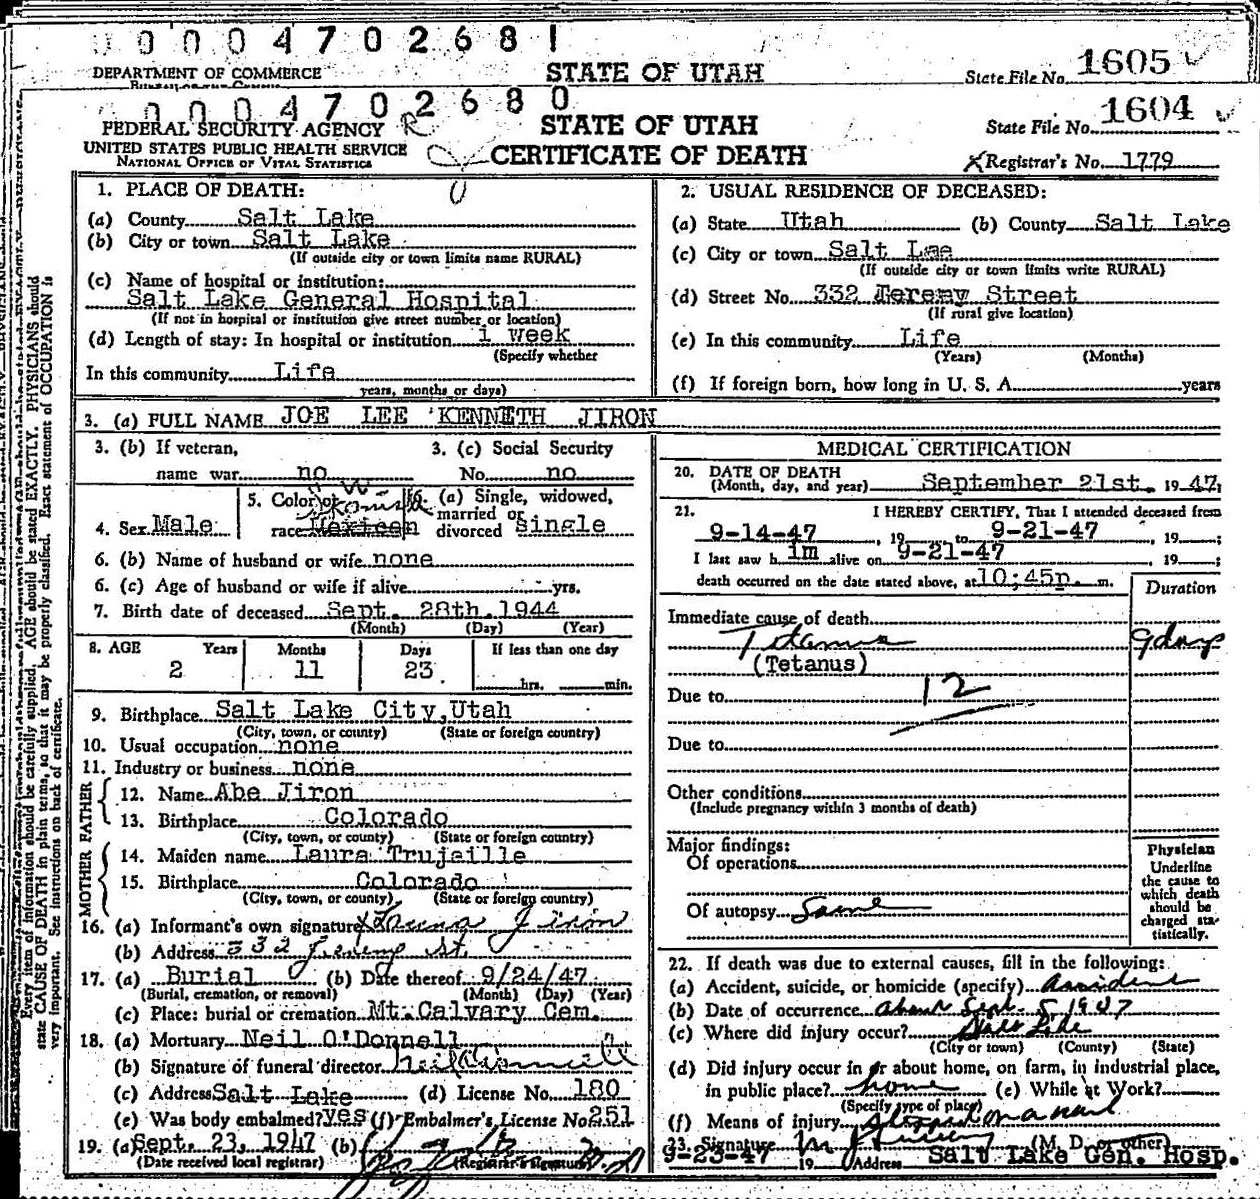 0 0 0 4 7 0 2 6 8 1
DEPARTMENT OF COMMERCE
STATE OF UTAH
State File No. 1605
0 0 0 4 7 0 2 6 8 0
FEDERAL SECURITY AGENCY R
UNITED STATES PUBLIC HEALTH SERVICE
NATIONAL OFFICE OF VITAL STATISTICS
STATE OF UTAH
CERTIFICATE OF DEATH
State File No. 1604
Registrar's No. 1779
Every item of information should be carefully supplied. AGE should be stated EXACTLY. PHYSICIANS should
state CAUSE OF DEATH in plain terms, so that it may be properly classified. Exact statement of OCCUPATION is
very important. See instructions on back of certificate.
1. PLACE OF DEATH:
(a) County Salt Lake
(b) City or town Salt Lake
(If outside city or town limits name RURAL)
(c) Name of hospital or institution:
Salt Lake General Hospital
(If not in hospital or institution give street number or location)
(d) Length of stay: In hospital or institution 1 week
(Specify whether
In this community Life
years, months or days)
2. USUAL RESIDENCE OF DECEASED:
(a) State Utah (b) County Salt Lake
(c) City or town Salt Lae
(If outside city or town limits write RURAL)
(d) Street No. 332 Jeremy Street
(If rural give location)
(e) In this community Life
(Years) (Months)
(f) If foreign born, how long in U. S. A. years
3. (a) FULL NAME JOE LEE KENNETH JIRON
3. (b) If veteran,
name war no
3. (c) Social Security
No. no
4. Sex Male
5. Color or W
race Mexican
6. (a) Single, widowed,
married or
divorced single
6. (b) Name of husband or wife none
6. (c) Age of husband or wife if alive yrs.
7. Birth date of deceased Sept. 28th. 1944
(Month) (Day) (Year)
8. AGE Years Months Days If less than one day
2 11 23 hrs. min.
9. Birthplace Salt Lake City, Utah
(City, town, or county) (State or foreign country)
10. Usual occupation none
11. Industry or business none
FATHER
12. Name Abe Jiron
13. Birthplace Colorado
(City, town, or county) (State or foreign country)
MOTHER
14. Maiden name Laura Trujeille
15. Birthplace Colorado
(City, town, or county) (State or foreign country)
16. (a) Informant's own signature Jiron
(b) Address 332 Jeremy St.
17. (a) Burial (b) Date thereof 9/24/47
(Burial, cremation, or removal) (Month) (Day) (Year)
(c) Place: burial or cremation Mt. Calvary Cem.
18. (a) Mortuary Neil O'Donnell
(b) Signature of funeral director Neil O'Donnell
(c) Address Salt Lake (d) License No. 180
(e) Was body embalmed? yes (f) Embalmer's License No 251
19. (a) Sept. 23, 1947 (b)
(Date received local registrar) (Registrar's signature)
MEDICAL CERTIFICATION
20. DATE OF DEATH
(Month, day, and year) September 21st. 19 47
21. I HEREBY CERTIFY, That I attended deceased from
9-14-47, 19 to 9-21-47, 19 ;
I last saw h im alive on 9-21-47, 19 ;
death occurred on the date stated above, at 10;45p. m.
Duration
Immediate cause of death
Tetanus 9 days
(Tetanus)
Due to 12
Due to
Other conditions
(Include pregnancy within 3 months of death)
Major findings:
Of operations
Of autopsy Same
Physician
Underline
the cause to
which death
should be
charged sta-
tistically.
22. If death was due to external causes, fill in the following:
(a) Accident, suicide, or homicide (specify) Accident
(b) Date of occurrence about Sept. 5, 1947
(c) Where did injury occur? Salt Lake
(City or town) (County) (State)
(d) Did injury occur in or about home, on farm, in industrial place,
in public place? home (e) While at Work?
(Specify type of place)
(f) Means of injury Stepped on a nail
23. Signature (M. D. or other)
9-23-47 19 Address Salt Lake Gen. Hosp.